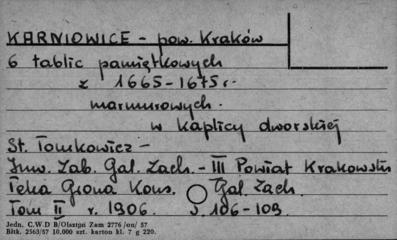 KARNIOWICE - pow. Kraków
6 tablic pamiątkowych
z 1665-1675 r.
marmurowych.
w kaplicy dworskiej
St. Tomkowicz -
Inw. Zab. Gal. Zach. - III Powiat Krakowski
Teka Grona Kons. Gal. Zach.
Tom II r. 1906. s. 106-109.
Jedn. C.W.D B/Olsztyn Zam 2776 /on/ 57
Bltk. 2563/57 10.000 szt. karton kl. 7 g 220.